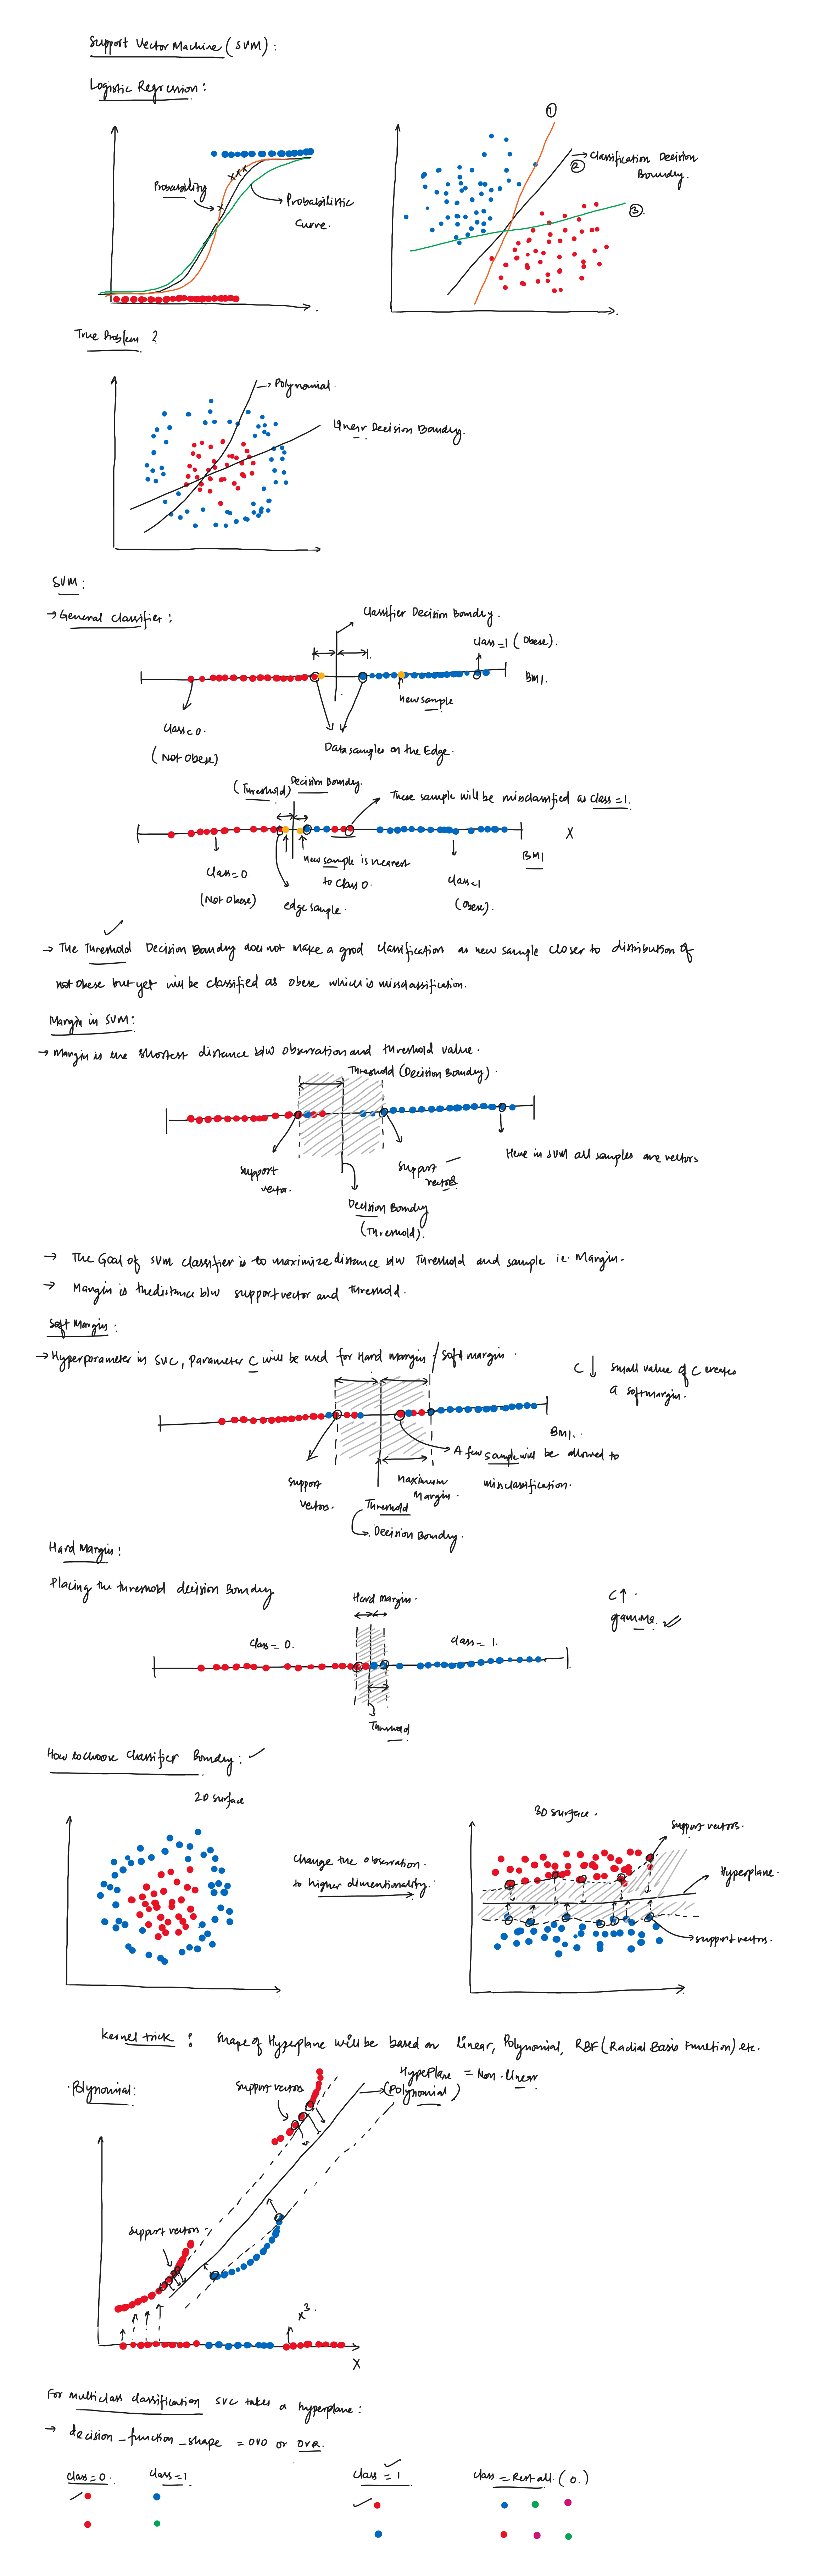 Support Vector Machine (SVM) :
Logistic Regression :
Probability
Probabilistic
Curve.
①
② Classification Decision
Boundry.
③
True Problem ?
Polynomial.
Linear Decision Boundry.
SVM :
→ General Classifier :
Classifier Decision Boundry.
class=1 (Obese).
BMI.
new sample
class=0.
(Not Obese)
Data samples on the Edge.
(Threshold) Decision Boundry.
These sample will be misclassified as class=1.
X
BMI
new sample is nearest
to class 0.
class=0
(Not Obese)
edge sample.
class=1
(Obese).
→ The Threshold Decision Boundry does not make a good classification as new sample closer to distribution of
not obese but yet will be classified as obese which is missclassification.
Margin in SVM :
→ Margin is the shortest distance b/w observation and threshold value.
Threshold (Decision Boundry).
Support
vector.
Support
vectors.
Here in SVM all samples are vectors
Decision Boundry
(Threshold).
→ The Goal of SVM classifier is to maximize distance b/w Threshold and sample ie. Margin.
→ Margin is the distance b/w support vector and threshold.
Soft Margin :
→ Hyperparameter in SVC, Parameter C will be used for Hard margin / Soft margin.
C ↓ small value of C creates
a softmargin.
BMI.
A few sample will be allowed to
missclassification.
Support
Vectors.
Maximum
Margin.
Threshold
Decision Boundry.
Hard Margin :
Placing the threshold decision Boundry
Hard margin.
C↑.
gamma.
class=0.
class=1.
Threshold
How to choose Classifier Boundry :
2D surface
3D surface.
Support vectors.
Change the observation.
to higher dimentionality.
Hyperplane.
support vectors.
Kernel trick : Shape of Hyperplane will be based on linear, Polynomial, RBF (Radial Basis Function) etc.
Polynomial:
Support vectors
HyperPlane = Non-linear
(Polynomial)
Support vectors
x³.
X
For multiclass classification SVC takes a hyperplane :
→ decision_function_shape = ovo or ovr.
class=0.
class=1
class=1
class=Rest all. (0.)